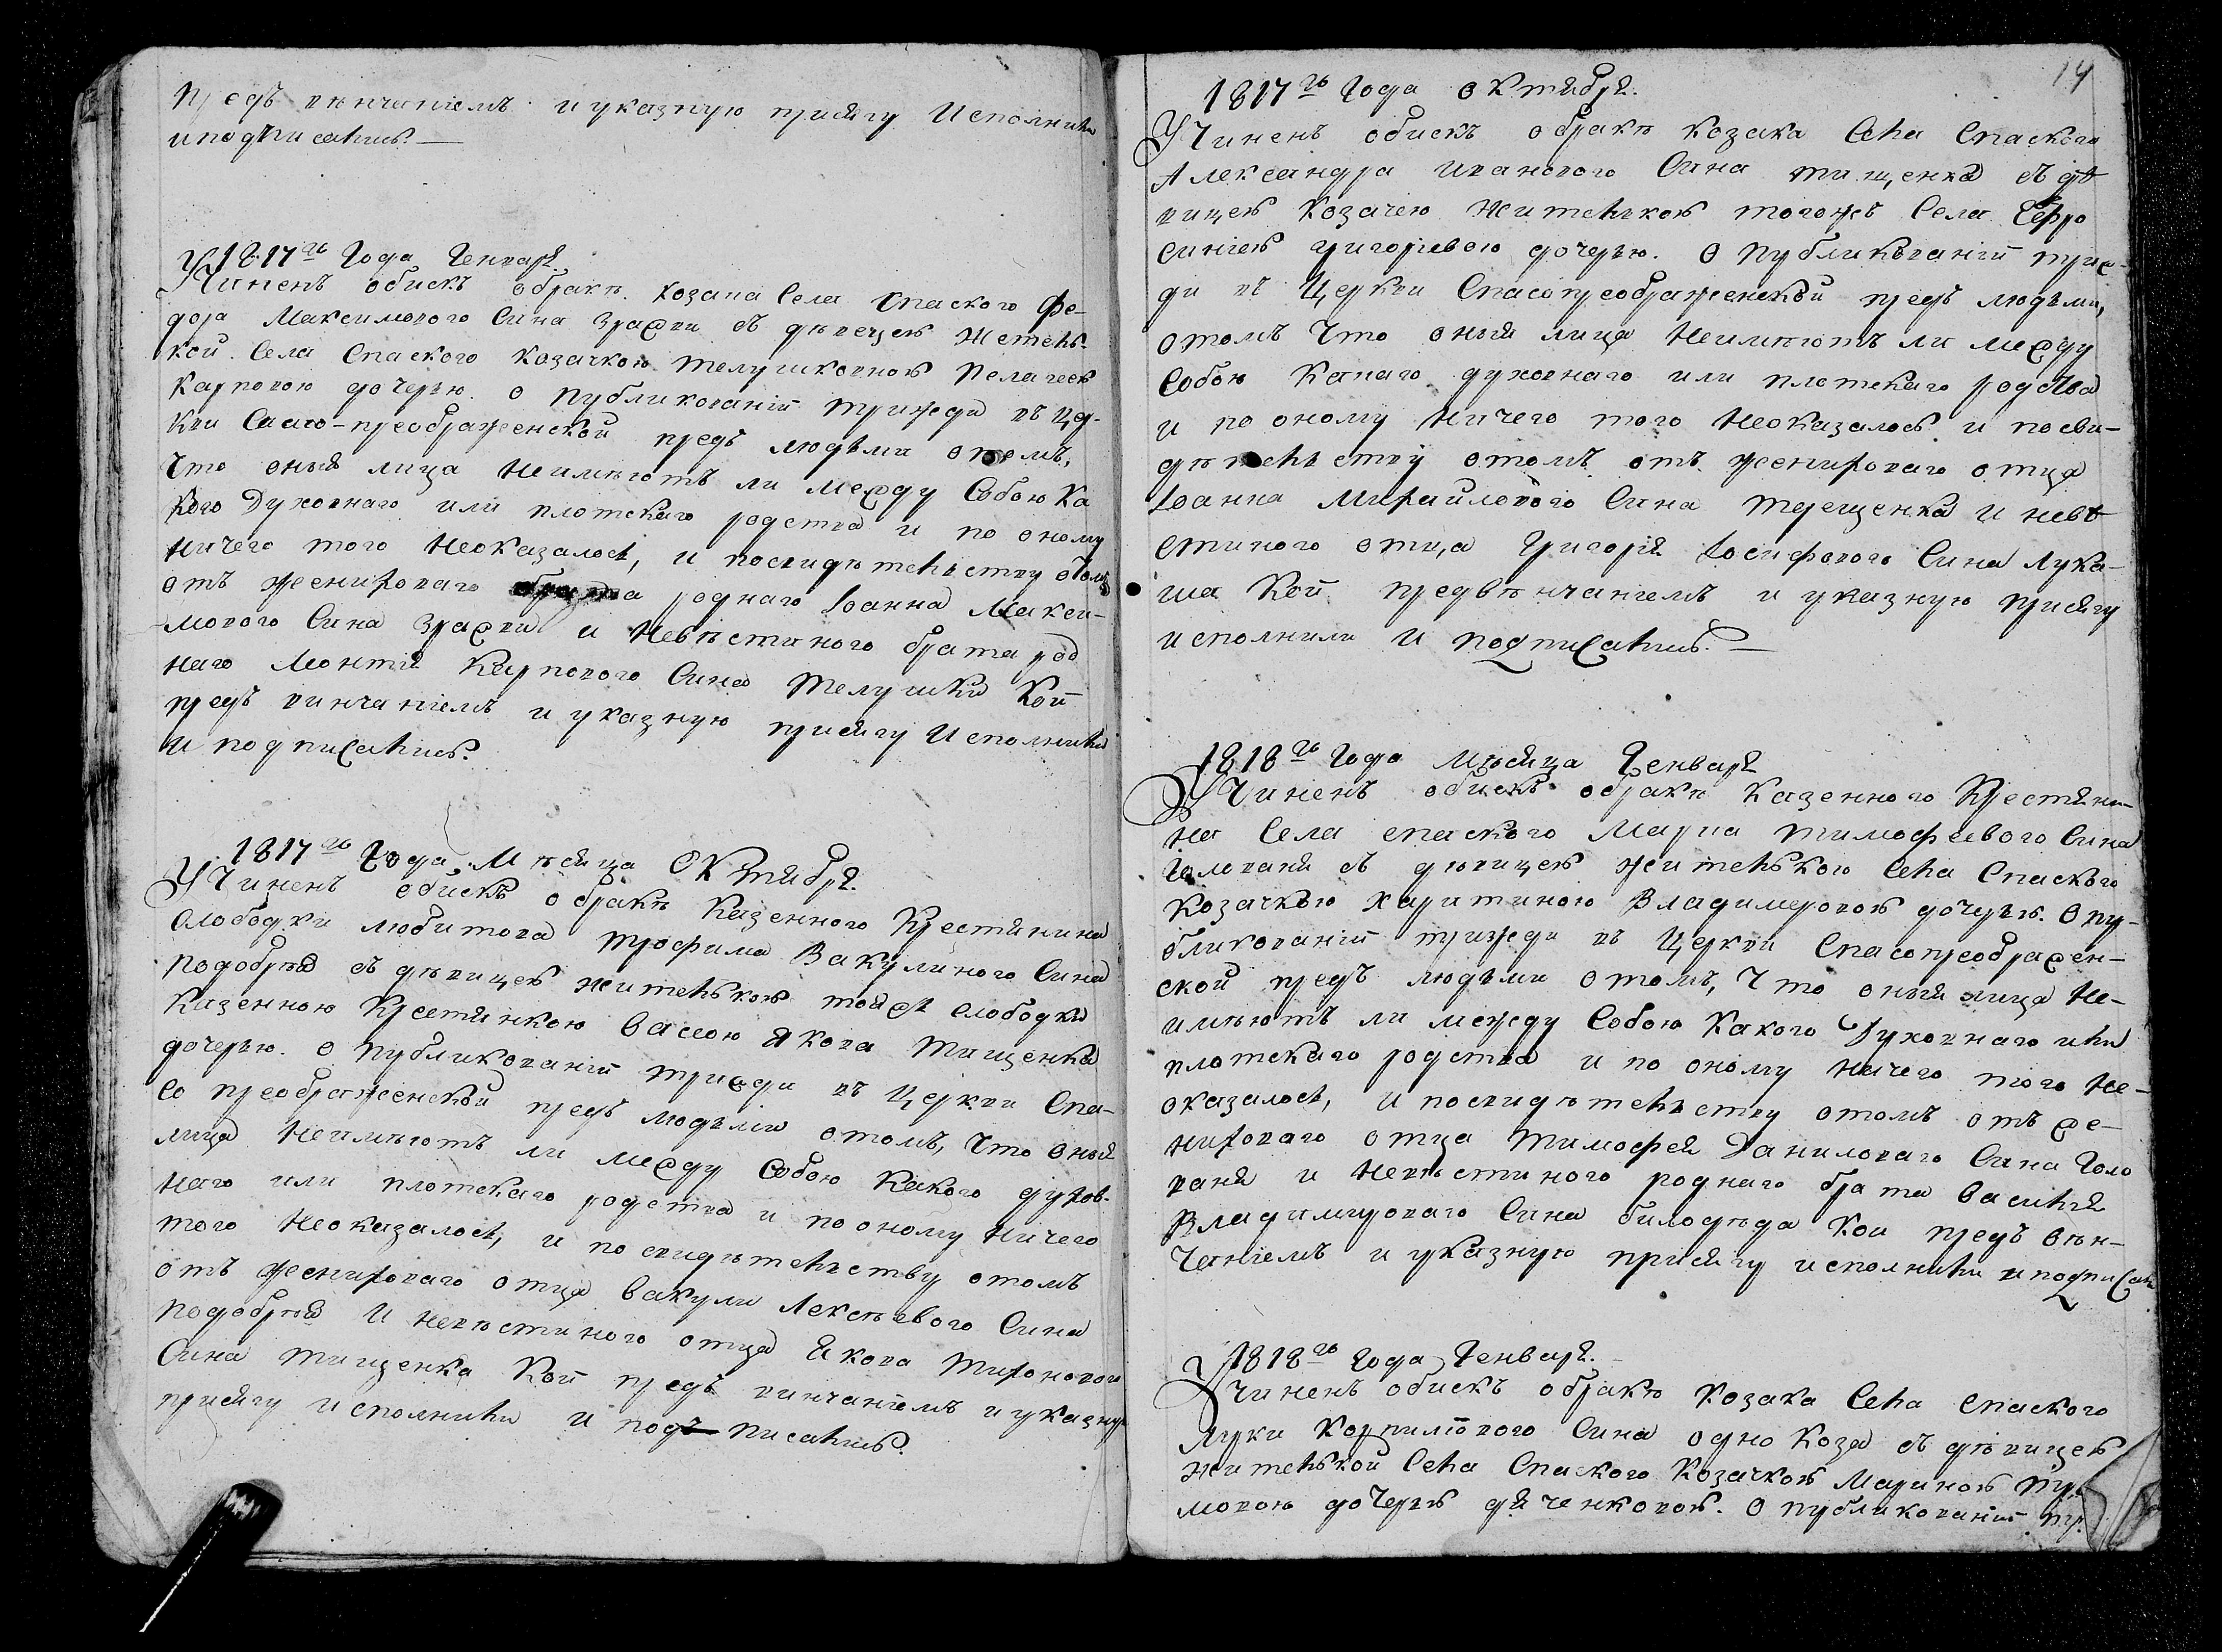 Предъ вѣнчаніемъ и указную присягу Исполнили
и подписались.
1817го Года Генваря.
Учиненъ обискъ обракѣ козака Села Спаского Фе-
дора Максимового Сина Зражви съ дѣвецею Жетель-
кой Села Спаского козачкою Телушковною Пелагеею
Карповою дочерью. О Публикованіи трижди въ Цер-
кви Спасо-преображенской предъ людьми отомъ,
Что оныя лица Неимѣютъ ли между Собою Ка
кого Духовнаго или плотскаго родства и по оному
Ничего того Неоказалось, и посвидѣтельству отомъ
отъ женихового брата роднаго Іоанна Макси-
мового Сина Зражви и Невѣстиного брата род
наго Монтія Карпового Сина Телушки Кои
предъ винчаніемъ и указную присягу Исполнили
и подписались.
1817го Года Мѣсяца Октября.
Учиненъ обискъ обракѣ Казенного Крестянина
Слободки любитова Трофима Вакулиного Сина
Подобрѣя съ дѣвицею жителькою тойже слободки
Казенною Крестянкою Вассою Якова Тищенка
дочерью. О Публикованіи трижди въ Церкви Спа-
со преображенской предъ людьми отомъ, Что оныя
лица Неимѣютъ ли между Собою Какого духов-
наго или плотскаго родства и по оному Ничего
того Неоказалось, и по свидѣтельству отомъ
отъ женихового отца Вакули Лексѣевого Сина
Подобрѣя И невѣстиного отца Якова Тихонового
Сина Тищенка Кои предъ винчаніемъ и указную
присягу Исполнили и подъ писались.
14
1817го Года Октября.
Учиненъ обискъ обракѣ козака Села Спаского
Александра Иванового Сина Тищенка съ дѣ
вицею Козачею Жителькою тогожъ Села Ефро
синіею григоріевою дочерью. О Публикованіи триж-
ди въ Церкви Спасопреображенской предъ людьми,
отомъ Что оныя лица Неимѣютъ ли между
Собою Какаго духовнаго или плотскаго родства
и по оному Ничего того Неоказалось и посви-
дѣтельству отомъ отъ женихового отца
Іоанна Михайлового Сина Терещенка и невѣ
стиного отца Григорія Іосифового Сина Лука-
ша Кои предвѣнчаніемъ и указную присягу
исполнили и подписались.
1818го Года Мѣсяца Генваря
Учиненъ обискъ обракѣ Казенного Крестяни-
на Села спаского Марка Тимофеевого Сина
Голованя съ дѣвицею жителькою Села Спаского
Козачкою Харитиною Владимеровою дочерью. О пу-
бликованіи трижди въ Церкви Спасопреображен-
ской предъ людьми отомъ, Что оныя лица Не-
имѣютъ ли между Собою Какого Духовнаго или
плотскаго родства и по оному Ничего того Не-
оказалось, и посвидѣтельству отомъ отъ же-
нихового отца Тимофея Даниловаго Сина Голо
ваня и Невѣстиного роднаго брата Василія
Владимироваго Сина билодѣда Кои предъ вѣн-
чаніемъ и указную присягу исполнили и подписали
1818го Года Генваря.
Учиненъ обискъ обракѣ козака Села Спаского
Луки Корнилового Сина однокоза съ дѣвицею
жителькой Села Спаского Козачкою Мариною
мовою дочерью дяченковою. О публикованіи